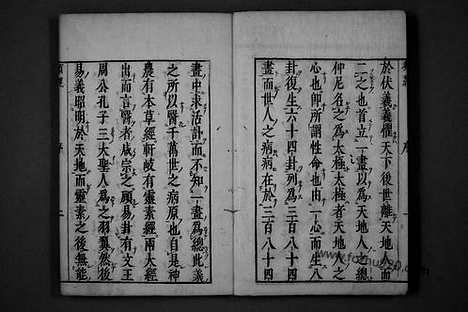 於伏羲羲懼天下後世離天地人而
二之也首立一畫以爲天地人之總
仲尼名之爲太極太極者天地人之
心也卽所謂性命也由一心而生八
卦復生六十四卦列爲三百八十四
畫而世人之病病在於三百八十四
畫中求活計而不知一畫爲總此羲
之所以醫千萬世之病原也自是神
農有本草經軒岐有靈素經兩大經
出而言醫者咸宗之顧易卦有文王
周公孔子三大聖人爲之羽翼然後
易義昭明於天地而靈素之後無能
序
序
二